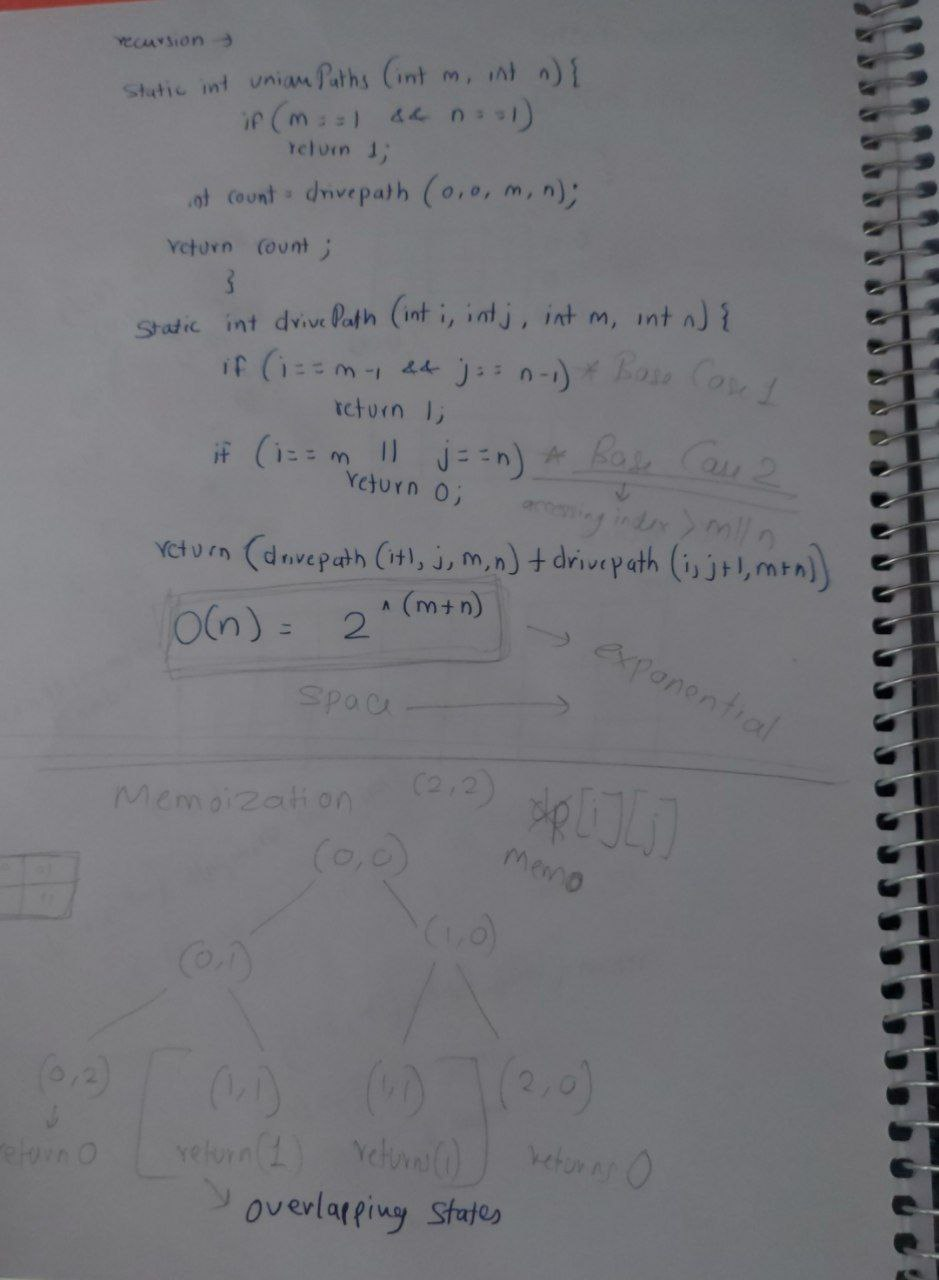 recursion →
static int uniquePaths (int m, int n) {
if (m==1 && n==1)
return 1;
int count = drivepath (0,0, m, n);
return count ;
}
static int drivePath (int i, int j, int m, int n) {
if (i==m-1 && j== n-1) * Base Case 1
return 1;
if (i== m || j==n) * Base Case 2
return 0;
↓
accessing index > m || n
return (drivepath (i+1, j, m, n) + drivepath (i, j+1, m+n))
O(n) = 2 ^ (m+n)
→ exponential
space →
Memoization (2,2) dp[i][j]
memo
(0,0)
(0,1) (1,0)
(0,2) (1,1) (1,1) (2,0)
↓
return 0 return(1) returns(1) returns 0
↘ overlapping states